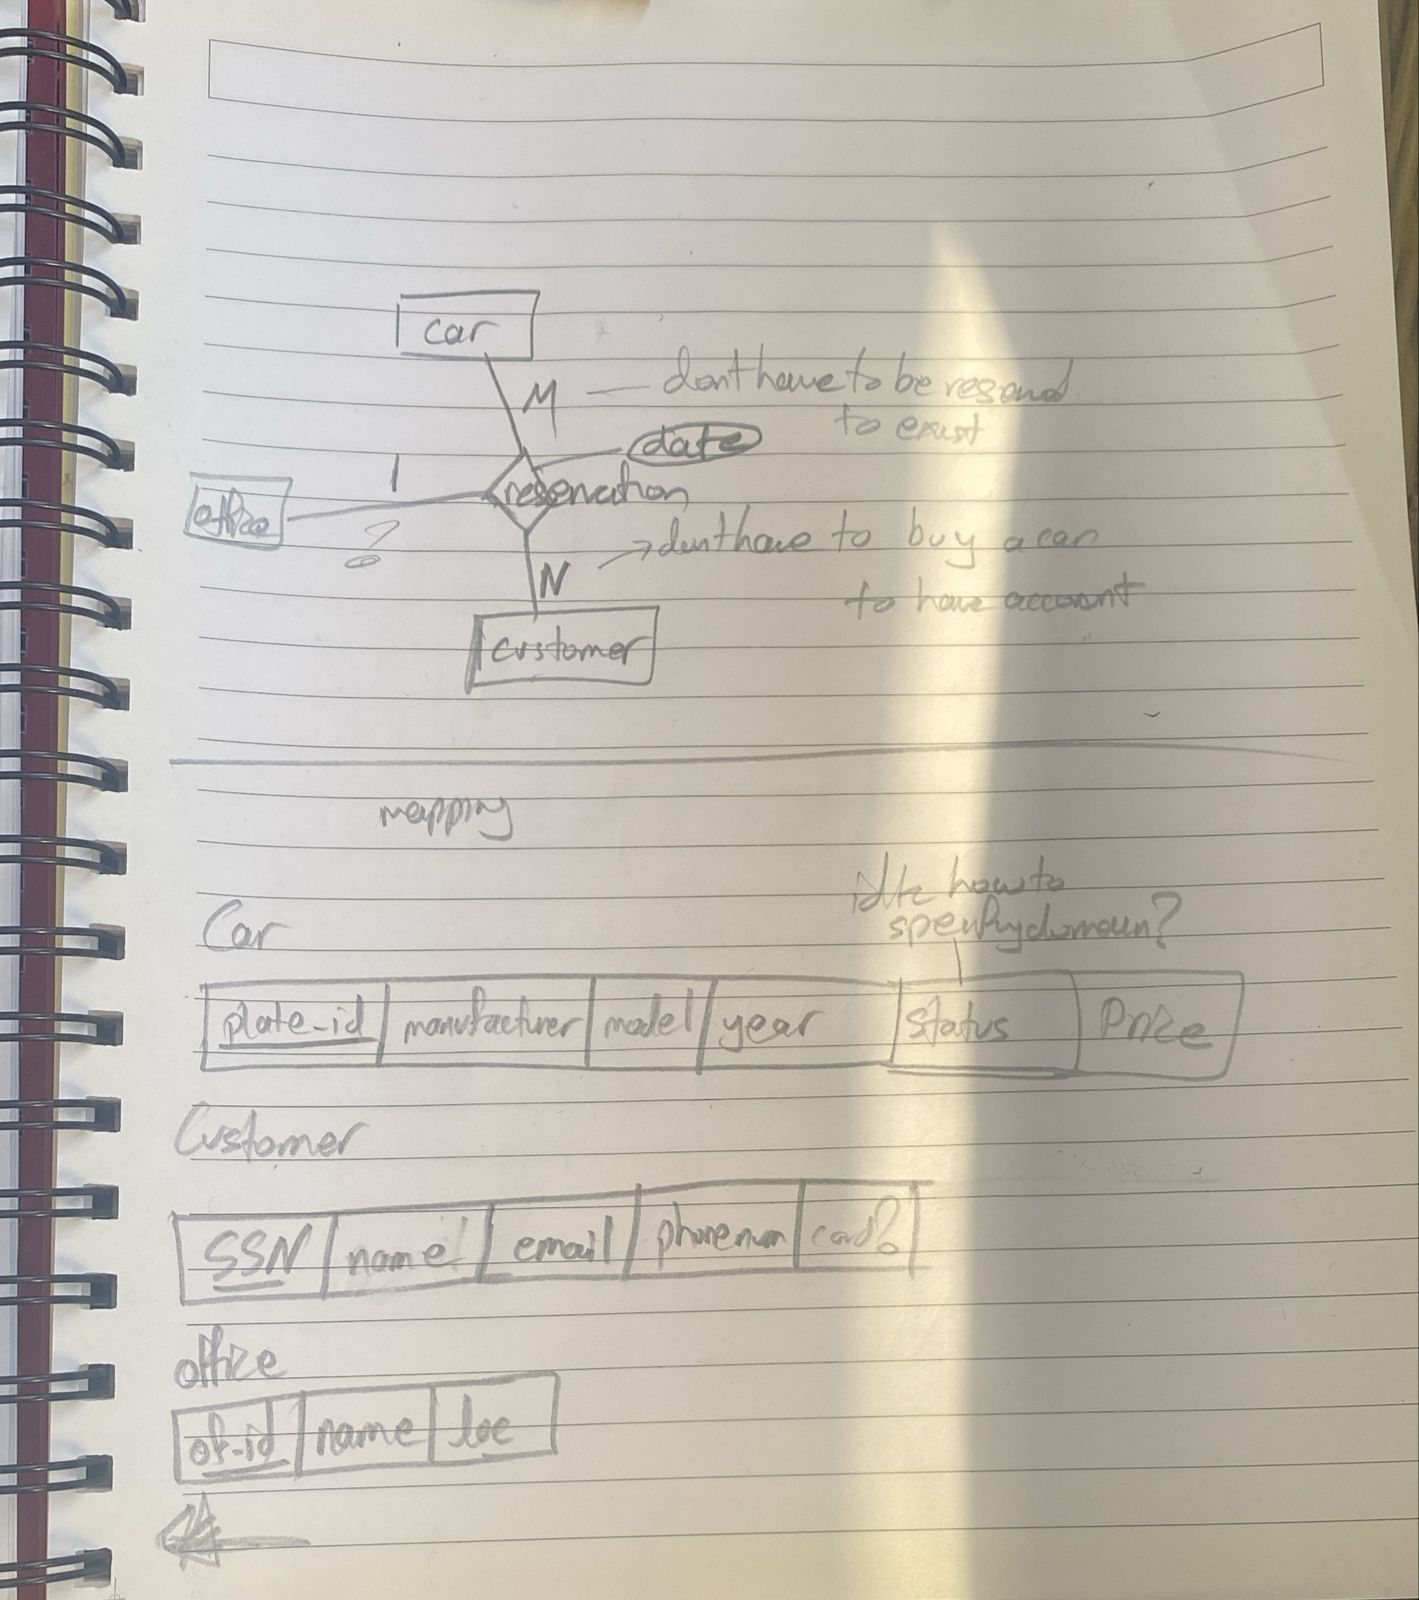 car
M — dont have to be reserved
to exist
date
1
office
reservation
?
→ dont have to buy a car
N
to have account
customer
mapping
idk how to
Car
specify domain?
plate_id manufacturer model year status Price
Customer
SSN name email phonenum card?
office
of-id name loc